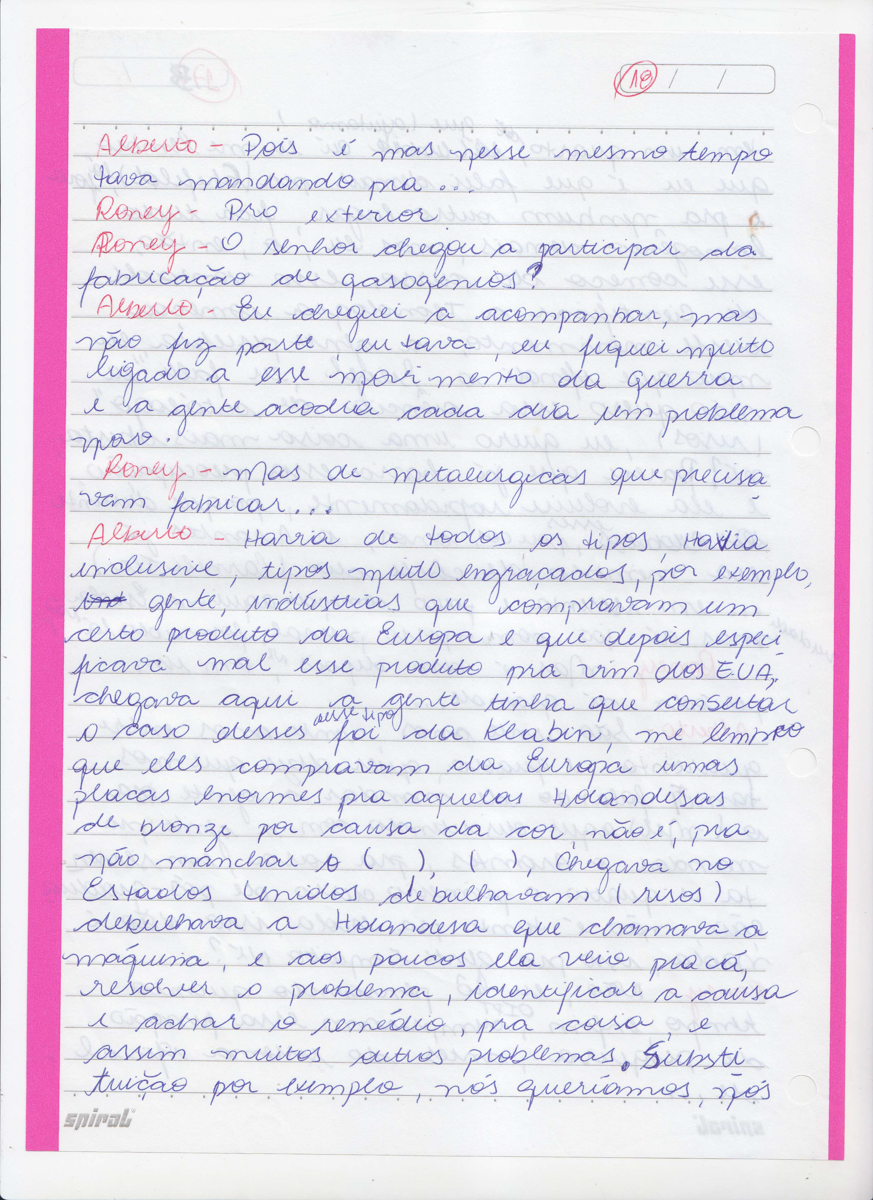 18 / /
Alberto - Pois é mas nesse mesmo tempo
tava mandando pra ...
Roney - Pro exterior
Roney - O senhor chegou a participar da
fabricação de gasogenios?
Alberto - Eu cheguei a acompanhar, mas
não fiz parte, eu tava, eu fiquei muito
ligado a esse movimento da guerra
e a gente acodia cada dia um problema
novo.
Roney - Mas de metalurgicas que precisa
vam fabricar...
Alberto - Havia de todos os tipos, Havia
inclusive, tipos muito engraçados, por exemplo,
gente, indústrias que compravam um
certo produto da Europa e que depois especi
ficava mal esse produto pra vim dos E.U.A,
chegava aqui a gente tinha que consertar
o caso desses desse tipo foi da Klabin, me lembro
que eles compravam da Europa umas
placas enormes pra aquelas Holandesas
de bronze por causa da cor, não é, pra
não manchar o ( ), ( ), Chegava no
Estados Unidos debulhavam (risos)
debulhava a Holandesa que chamava a
máquina, e aos poucos ela veio pra cá,
resolver o problema, identificar a causa
e achar o remédio, pra coisa, e
assim muitos outros problemas. Substi
tuição por exemplo, nós queríamos, nós
spiral